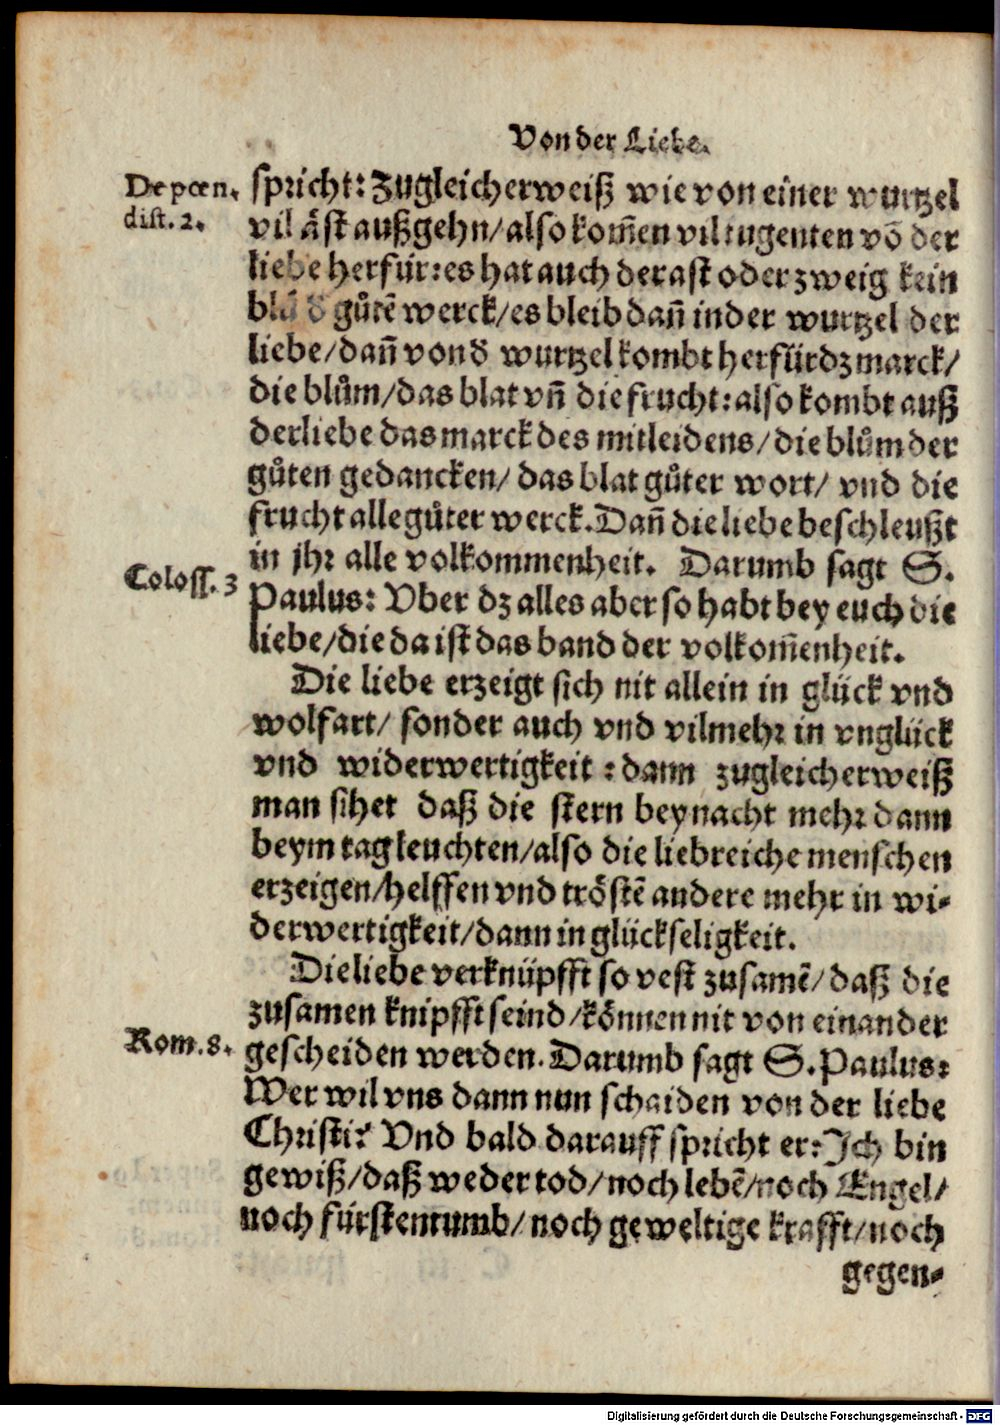 Von der Liebe.
De pœn.
dist. 2.
spricht: Zugleicherweiß wie von einer wurtzel
vil äst außgehn/ also kom̃en vil tugenten võ der
liebe herfür: es hat auch der ast oder zweig kein
blů ð gůtẽ werck/ es bleib dañ in der wurtzel der
liebe/ dañ von ð wurtzel kombt herfür dz marck/
die blům/ das blat vñ die frucht: also kombt auß
der liebe das marck des mitleidens/ die blům der
gůten gedancken/ das blat gůter wort/ vnd die
frucht alle gůter werck. Dañ die liebe beschleußt
in jhr alle volkommenheit. Darumb sagt S.
Coloss. 3
Paulus: Vber dz alles aber so habt bey euch die
liebe/ die da ist das band der volkom̃enheit.
Die liebe erzeigt sich nit allein in glück vnd
wolfart/ sonder auch vnd vilmehr in vnglück
vnd widerwertigkeit: dann zugleicherweiß
man sihet daß die stern bey nacht mehr dann
beym tag leuchten/ also die liebreiche menschen
erzeigen/ helffen vnd tröstẽ andere mehr in wi-
derwertigkeit/ dann in glückseligkeit.
Die liebe verknüpfft so vest zusamẽ/ daß die
zusamen knipfft seind/ können nit von einander
Rom. 8.
gescheiden werden. Darumb sagt S. Paulus:
Wer wil vns dann nun schaiden von der liebe
Christi? Vnd bald darauff spricht er: Ich bin
gewiß/ daß weder tod/ noch lebẽ/ noch Engel/
noch fürstentumb/ noch geweltige krafft/ noch
gegen-
Digitalisierung gefördert durch die Deutsche Forschungsgemeinschaft - DFG